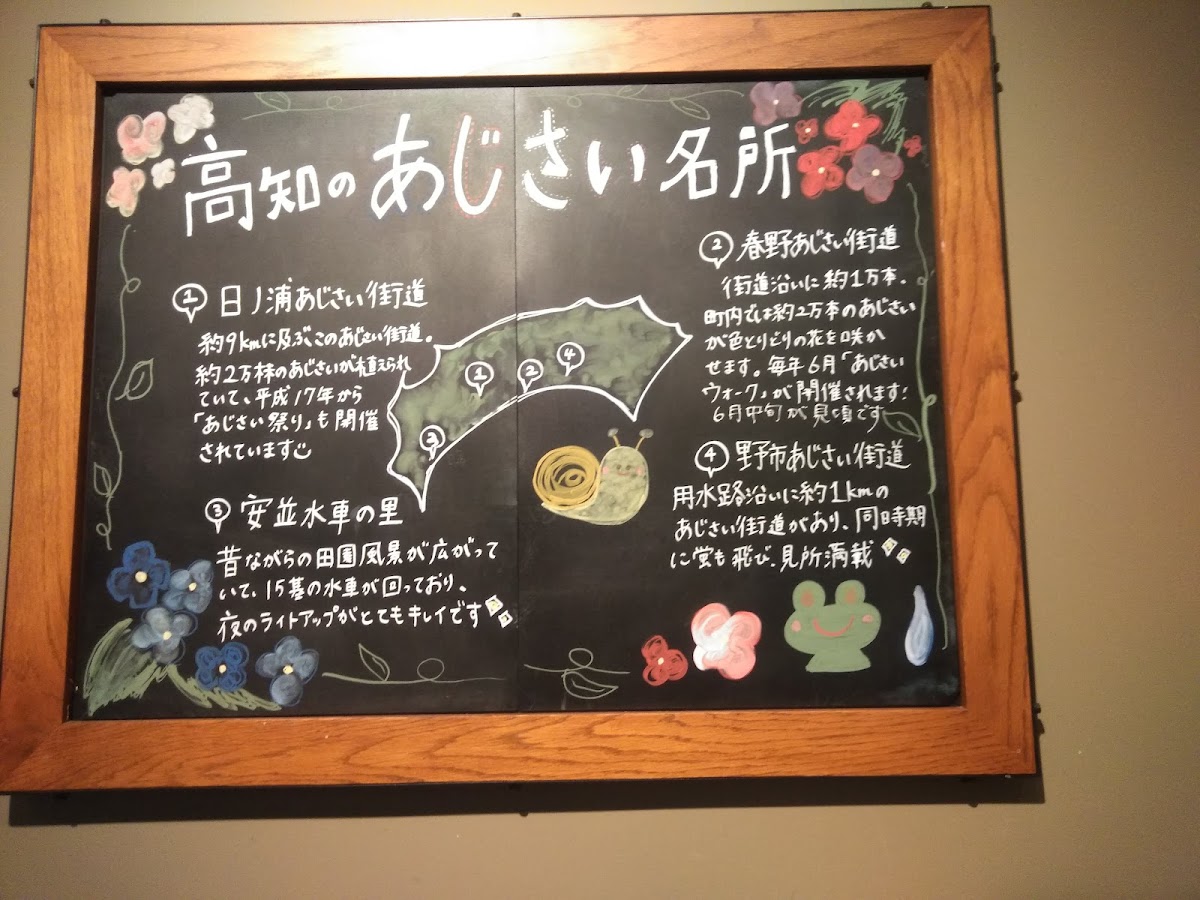 高知のあじさい名所
① 日ノ浦あじさい街道
約9kmに及ぶこのあじさい街道。
約2万株のあじさいが植えられ
ていて、平成17年から
「あじさい祭り」も開催
されています
② 春野あじさい街道
街道沿いに約1万本.
町内では約2万本のあじさい
が色とりどりの花を咲か
せます。毎年6月「あじさい
ウォーク」が開催されます!
6月中旬が見頃です
③ 安並水車の里
昔ながらの田園風景が広がって
いて、15基の水車が回っており、
夜のライトアップがとてもキレイです
④ 野市あじさい街道
用水路沿いに約1kmの
あじさい街道があり、同時期
に蛍も飛び、見所満載
①
②
④
③